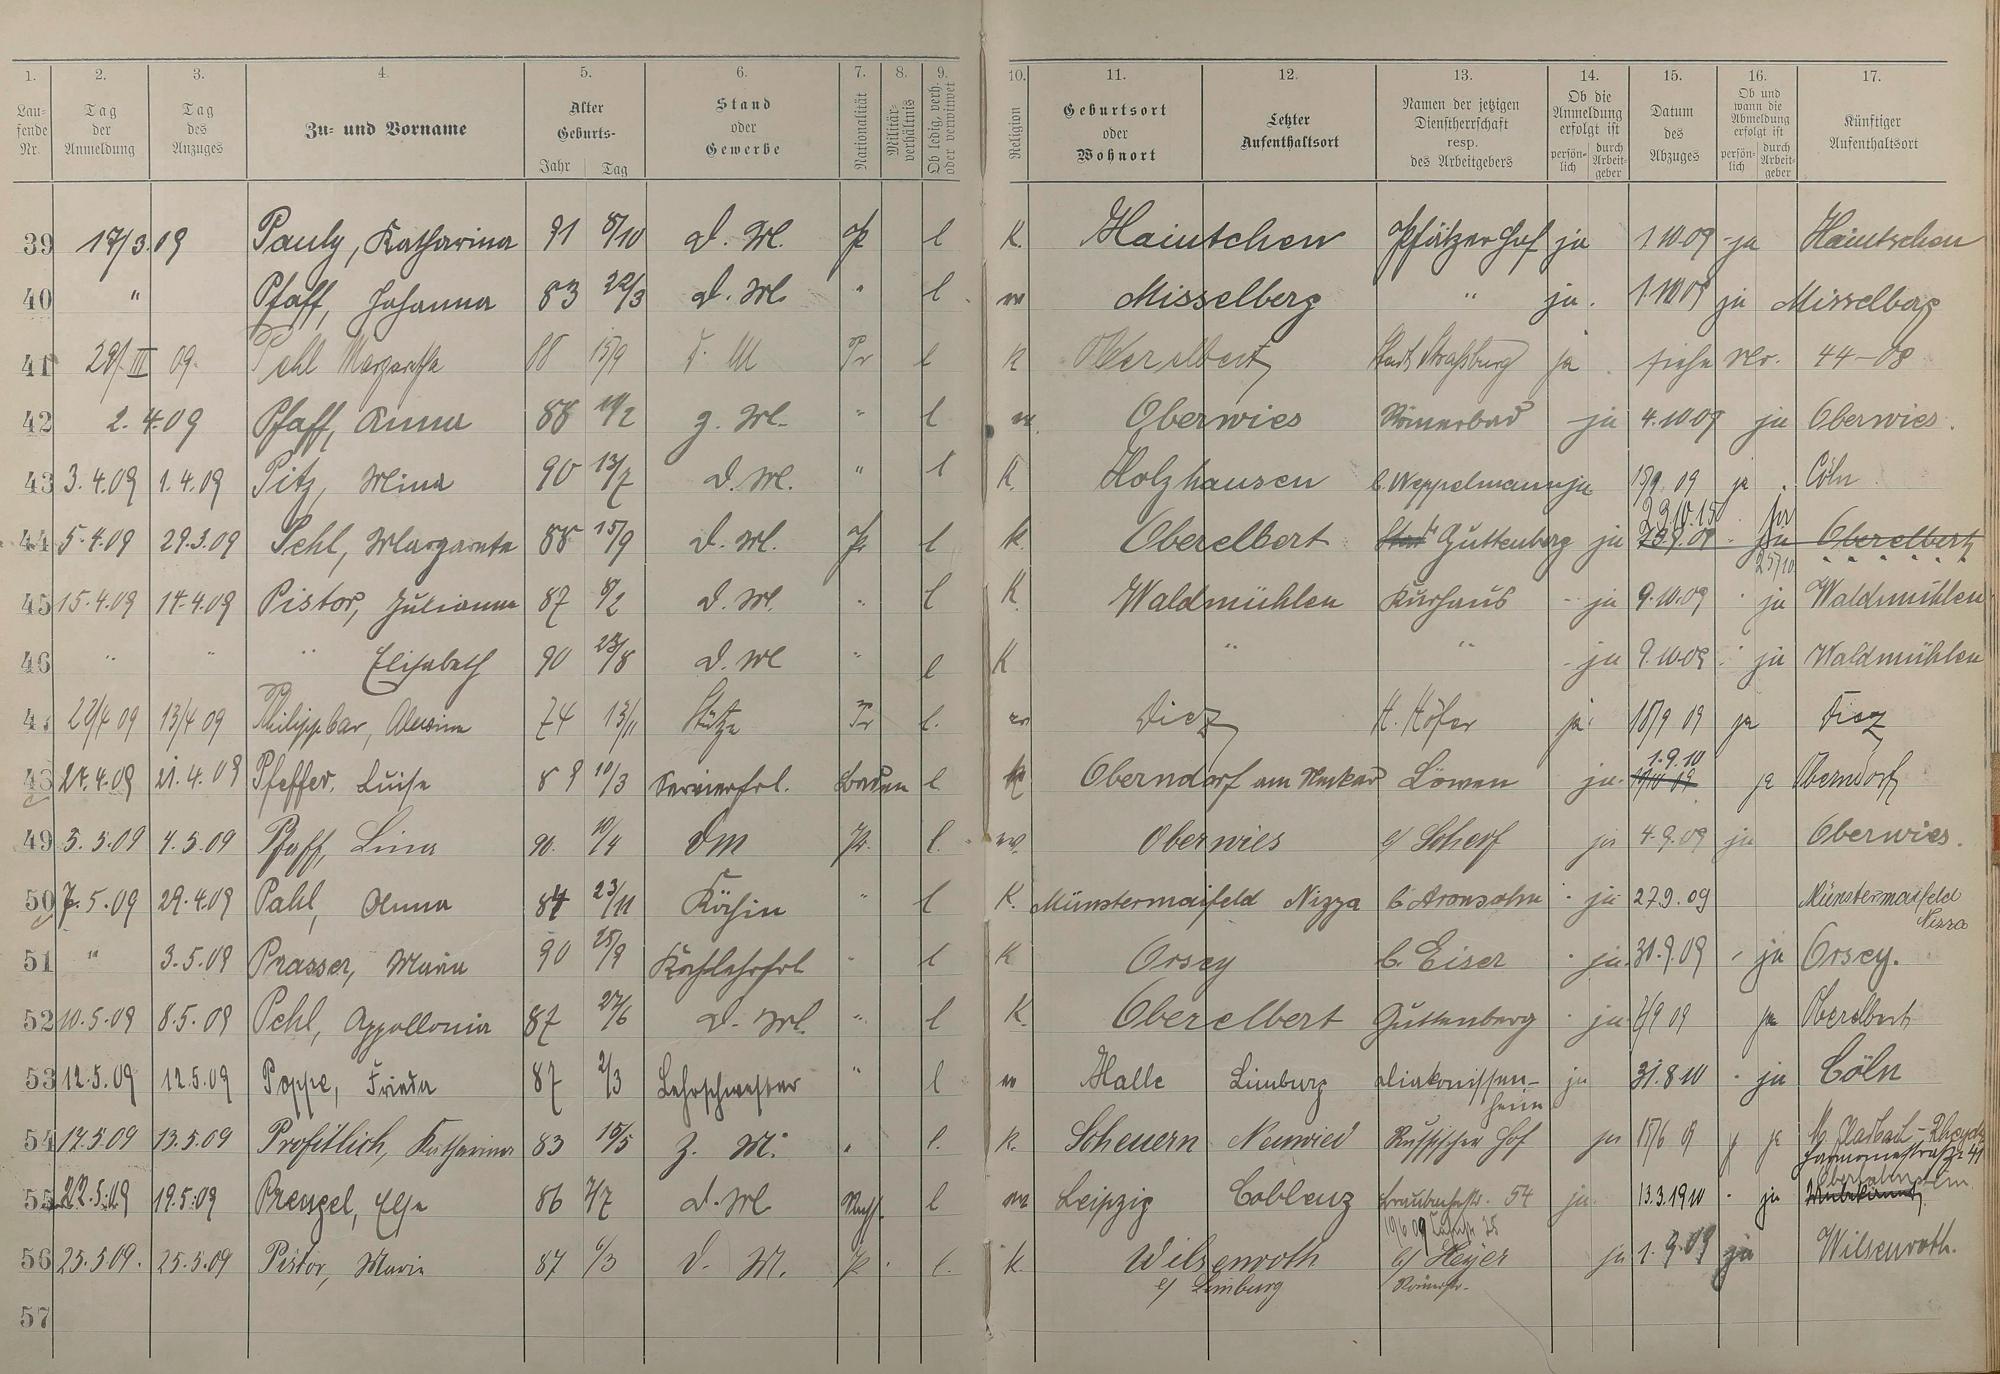 1. 2. 3. 4. 5. 6. 7. 8. 9. 10. 11. 12. 13. 14. 15. 16. 17.
Lau-
fende
Nr.
Tag
der
Anmeldung
Tag
des
Anzuges
Zu- und Vorname
Alter
Geburts-
Jahr Tag
Stand
oder
Gewerbe
Nationalität
Militär-
verhältnis
Ob ledig, verh.
oder verwitwet
Religion
Geburtsort
oder
Wohnort
Letzter
Aufenthaltsort
Namen der jetzigen
Dienstherrschaft
resp.
des Arbeitgebers
Ob die
Anmeldung
erfolgt ist
persön-
lich
durch
Arbeit-
geber
Datum
des
Abzuges
Ob und
wann die
Abmeldung
erfolgt ist
persön-
lich
durch
Arbeit-
geber
Künftiger
Aufenthaltsort
39 17/3.09 Pauly, Katharina 91 8/10 d. M. Pr l K. Haintchen Pfälzer Hof ja 1.10.09 - ja Haintschen
40 " Pfaff, Johanna 83 22/3 d. M. " l Misselberg " ja. 1.10.09 ja Misselberg
41 29/III 09. Pehl Margaretha 88 15/9 d. M Pr l K Oberelbert Stadt Straßburg ja siehe Nr. 44-08
42 2.4.09 Pfaff, Anna 88 z. M. " l Oberwies Römerbad - ja 4.10.09 ja Oberwies.
43 3.4.09 1.4.09 Pitz, Mina 90 13/7 d. M. " l K. Holzhausen b. Weppelmann ja 09 ja Cöln
44 5.4.09 29.3.09 Pehl, Margareta 88 15/9 d. M. Pr l K. Oberelbert Stadt Guttenberg ja ja Oberelbert
45 15.4.09 14.4.09 Pistor, Julianna 87 8/2 d. M. " l K Waldmühlen Kurhaus - ja 9.10.09 " ja Waldmühlen
46 " " " Elisabeth 90 d. M " l K " " - ja 9.10.09 " ja Waldmühlen
47 13/4 09 74 13/11 Stütze Pr l. Diez H. Höfer ja 18/9 09 ja Diez
48 21.4.09 Pfeffer, Luise 89 10/3 Servierfrl. Baden l K Oberndorf am Neckar Löwen ja. 1.9.10 ja Oberndorf
49 5.5.09 4.5.09 Pfaff, Lina 90. 10/4 dm Pr. l. Oberwies ja 4.9.09 ja Oberwies.
50 7.5.09 29.4.09 Pahl, Anna 84 23/11 Köchin " l K. Münstermaifeld Nizza b. Aronsohn " ja 27.9.09 Münstermaifeld
Nizza
51 " 3.5.09 Prasser, Maria 90 25/9 Kochlehrfrl " l K Orsey b. Eiser " ja. 30.9.09 " ja Orsey.
52 10.5.09 8.5.09 Pehl, Appollonia 87 27/6 d. M. " l K. Oberelbert Guttenberg " ja 09 ja Oberelbert
53 12.5.09 12.5.09 Poppe, Frieda 87 2/3 Lehrschwester " l Halle Limburg Diakonissen-
heim ja 31.8.10 " ja Cöln
54 17.5.09 13.5.09 Profitlich, Katharina 83 15/5 z. M. " l. K. Scheuern Neuwied Russischer Hof ja 15/6 09 ja M. Gladbach - Rheydt
Harmoniestraße 41
55 22.5.09 19.5.09 Prengel, Else 86 7/7 d. M. l Leipzig Coblenz 54 ja. 13.3.1910 " ja Oberlahnstein
Unbekannt
56 25.5.09. 25.5.09 Pistor, Marie 87 6/3 d. M. Pr. l. K. Wilsenroth b/ Heyer ja 1.9.09 ja Wilsenroth.
b/ Limburg Römerstr.
57